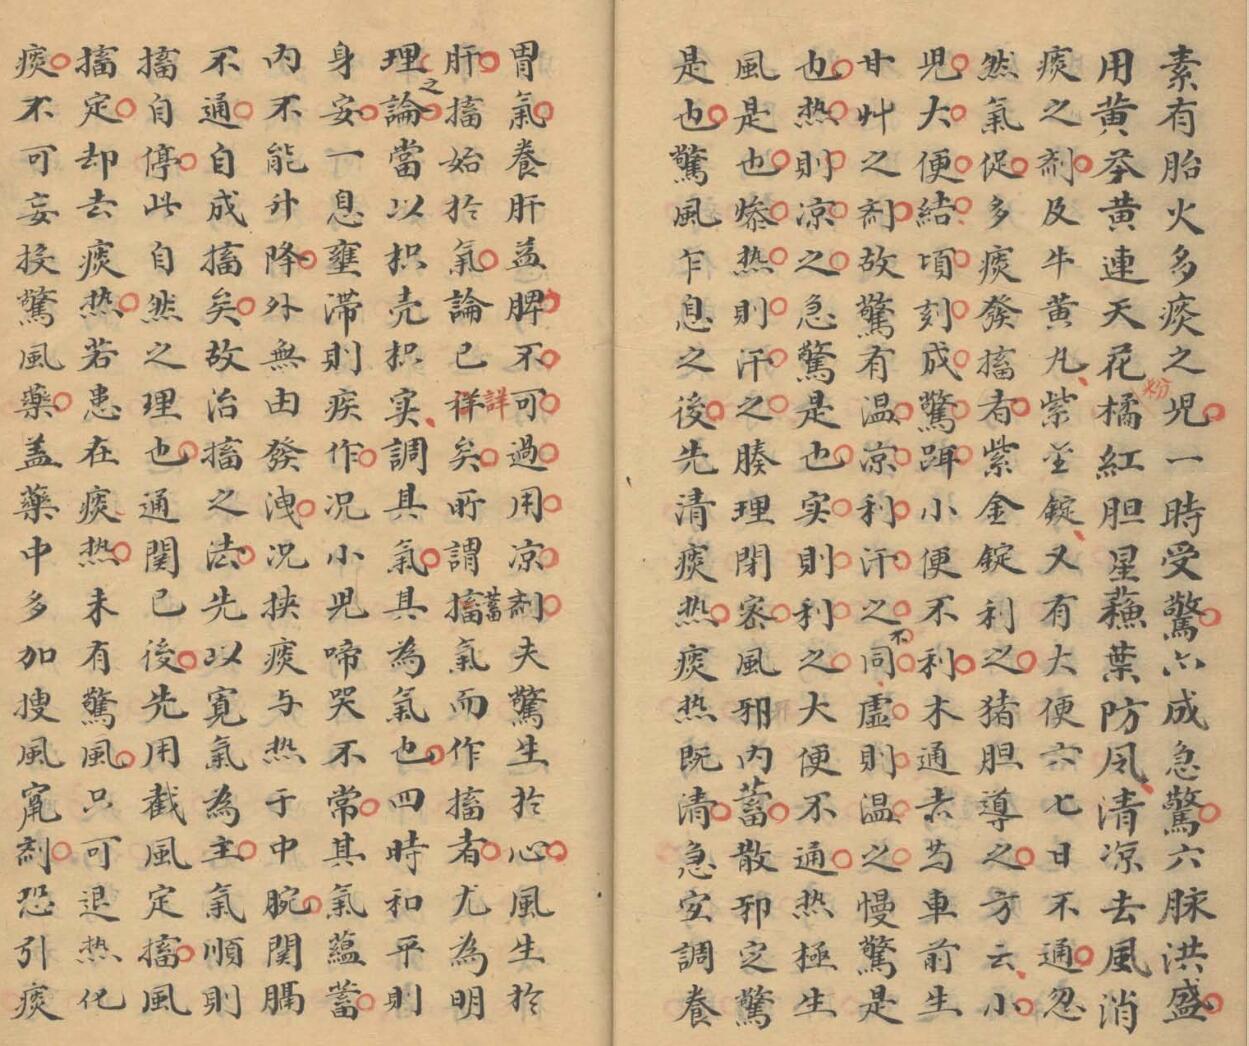 素有胎火多痰之児一時受驚亦成急驚六脉洪盛
用黄芩黄連天花粉橘紅胆星蘓葉防风清凉去風消
痰之剤及牛黄丸紫金錠又有大便六七日不通忽
然氣促多痰發搐者紫金錠利之猪胆導之方云小
児大便結頃刻成驚蹕小便不利木通赤芍車前生
甘艸之剤故驚有温凉利汗之不同虚則温之慢驚是
也热則凉之急驚是也实則利之大便不通热極生
風是也㷀热則汗之腠理閉密風邪内蓄散邪定驚
是也驚風乍息之後先清痰热痰热既清急宜調養
胃氣養肝益脾不可過用凉剤夫驚生於心風生於
肝搐始於氣論已詳矣所謂搐蓄氣而作搐者尤為明
理之論當以枳壳枳实調其氣其為氣也四時和平則
身安一息壅滞則疾作况小児啼哭不常其氣蘊蓄
内不能升降外無由發洩况挾痰与热于中腕関膈
不通自成搐矣故治搐之法先以寛氣為主氣順則
搐自停此自然之理也通関已後先用截風定搐風
搐定却去痰热若患在痰热未有驚風只可退热化
痰不可妄投驚風藥盖藥中多加搜風窜剤恐引痰